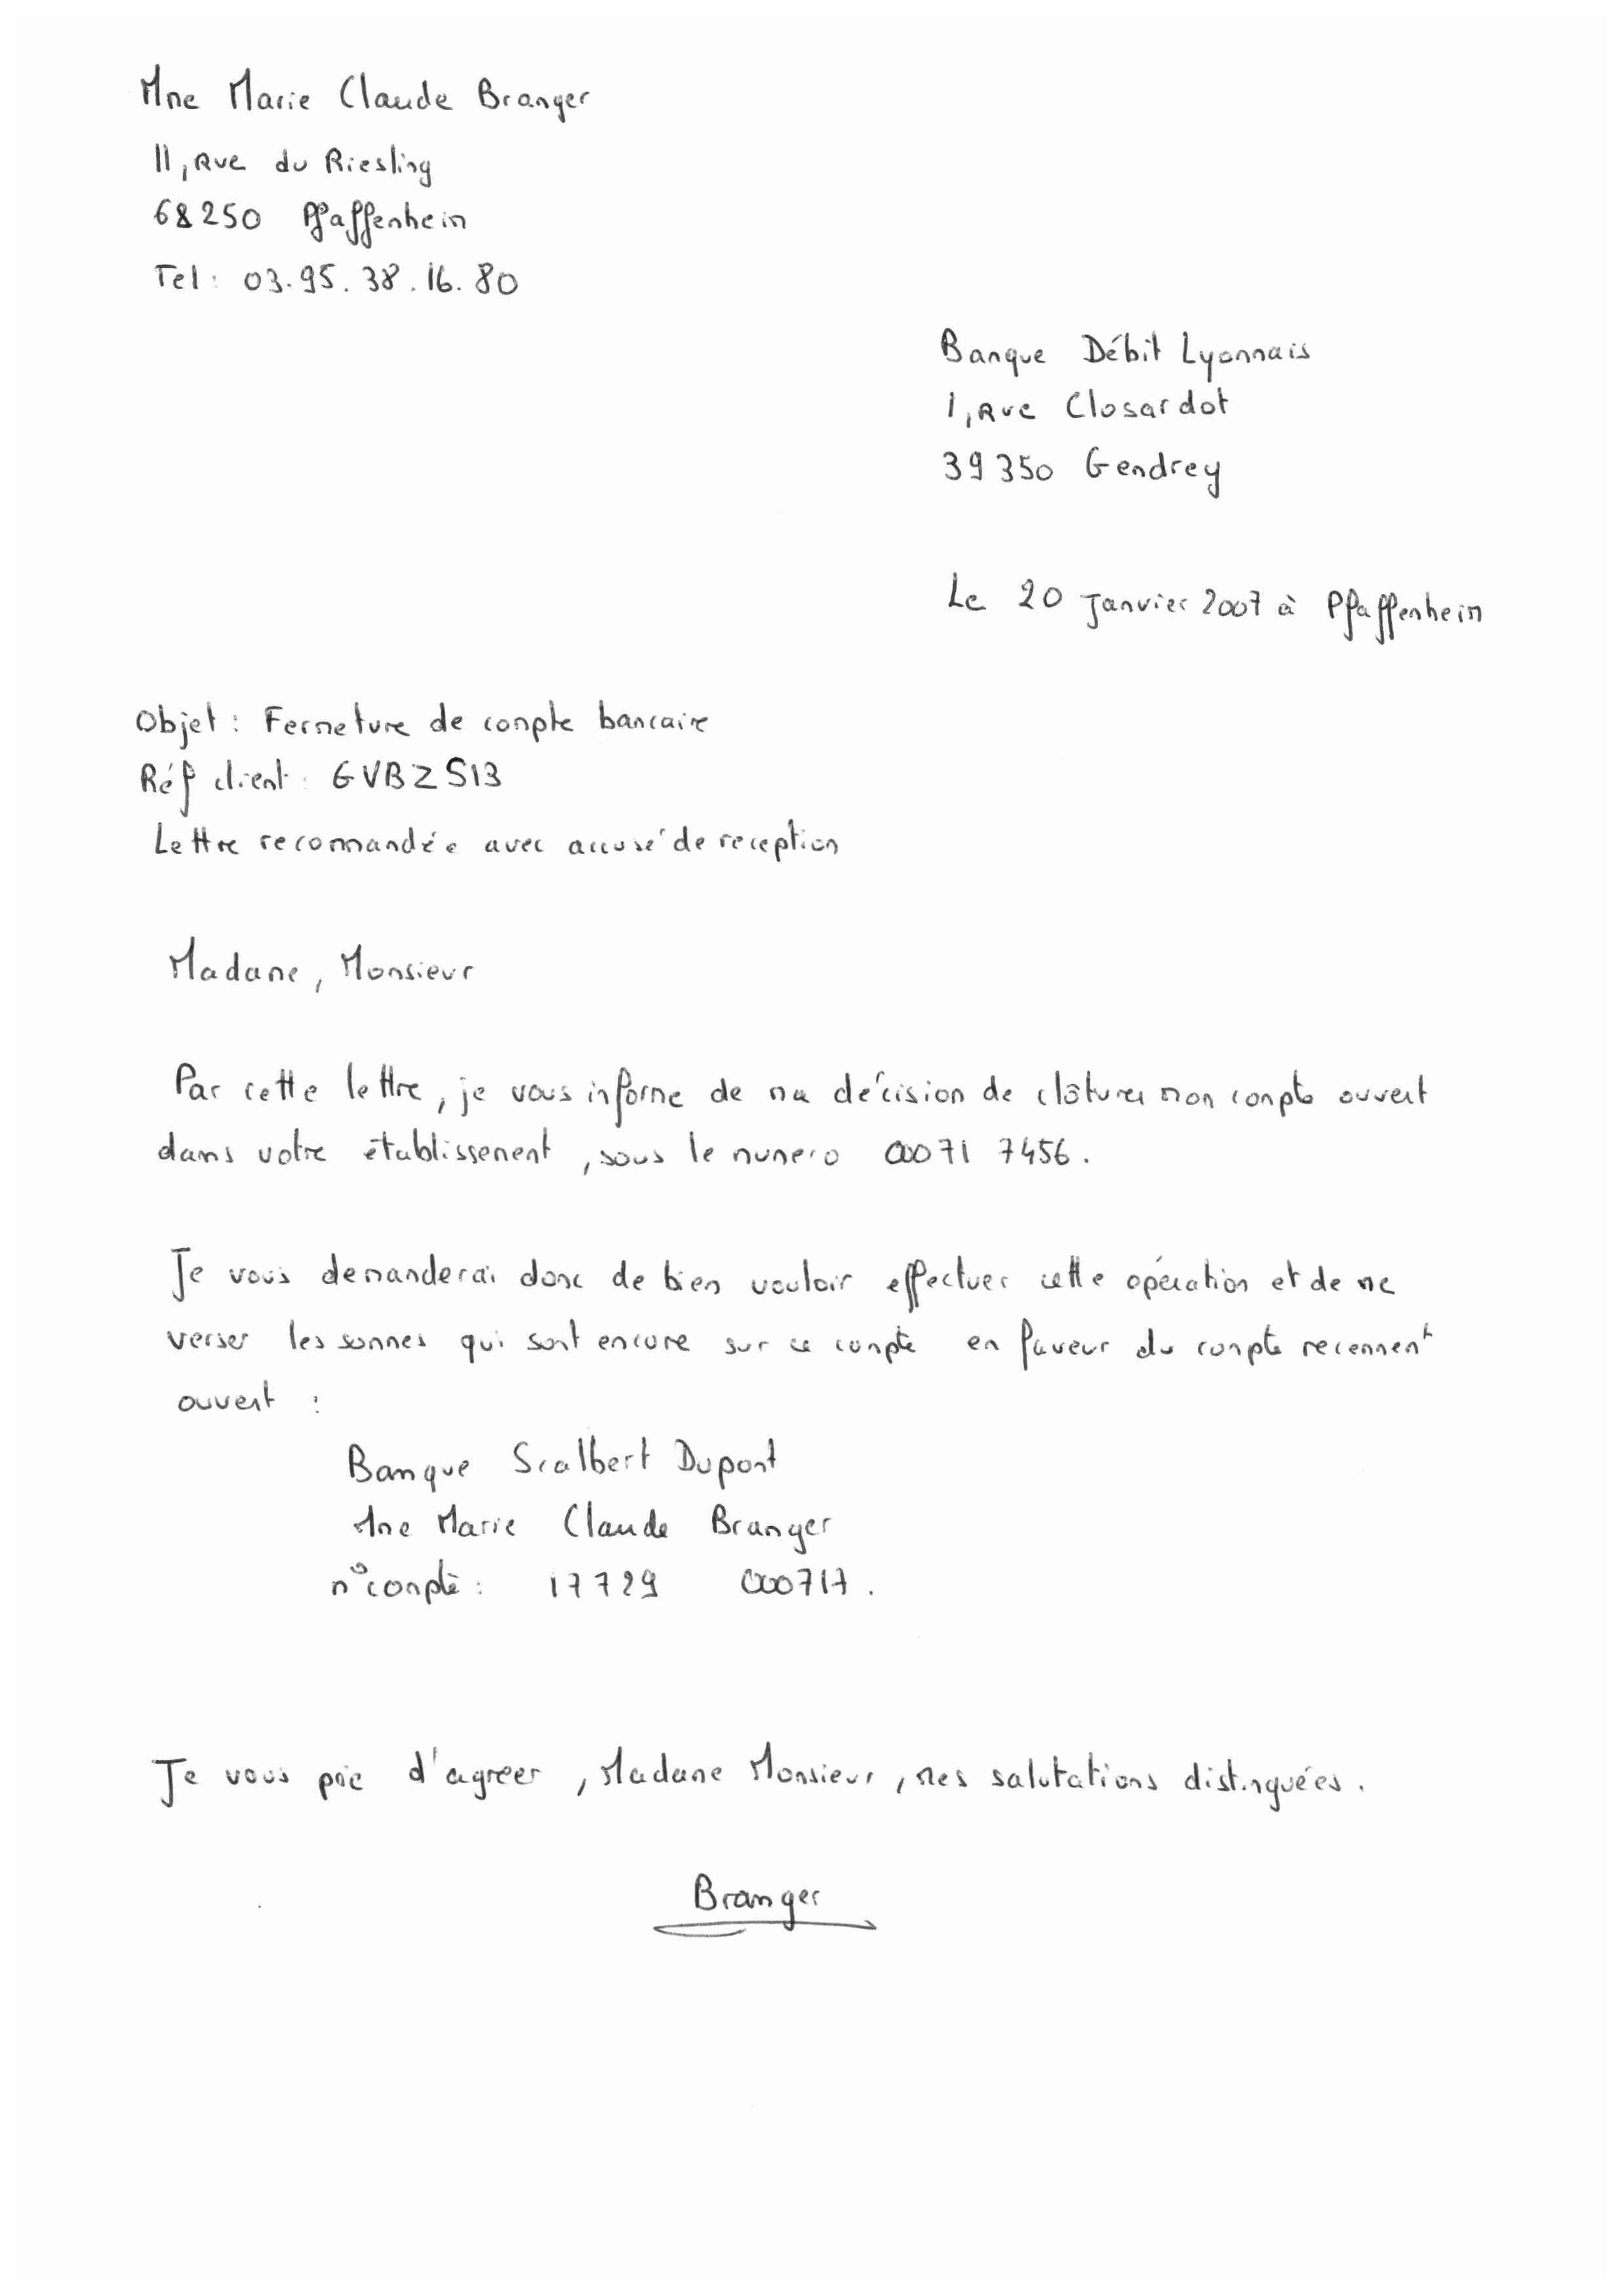 Mme Marie Claude Branger
11, Rue du Riesling
68250 Pfaffenheim
Tel : 03.95.38.16.80
Banque Débit Lyonnais
1, Rue Closardot
39350 Gendrey
Le 20 Janvier 2007 à Pfaffenheim
Objet : Fermeture de compte bancaire
Réf client : GVBZS13
Lettre recommandée avec accusé de reception
Madame, Monsieur
Par cette lettre, je vous informe de ma décision de clôturer mon compte ouvert
dans votre établissement, sous le numero 00071 7456.
Je vous demanderai donc de bien vouloir effectuer cette opération et de me
verser les sommes qui sont encore sur ce compte en faveur du compte recemment
ouvert :
Banque Scalbert Dupont
Mme Marie Claude Branger
n° compte : 17729 000717.
Je vous prie d'agréer, Madame Monsieur, mes salutations distinguées.
Branger